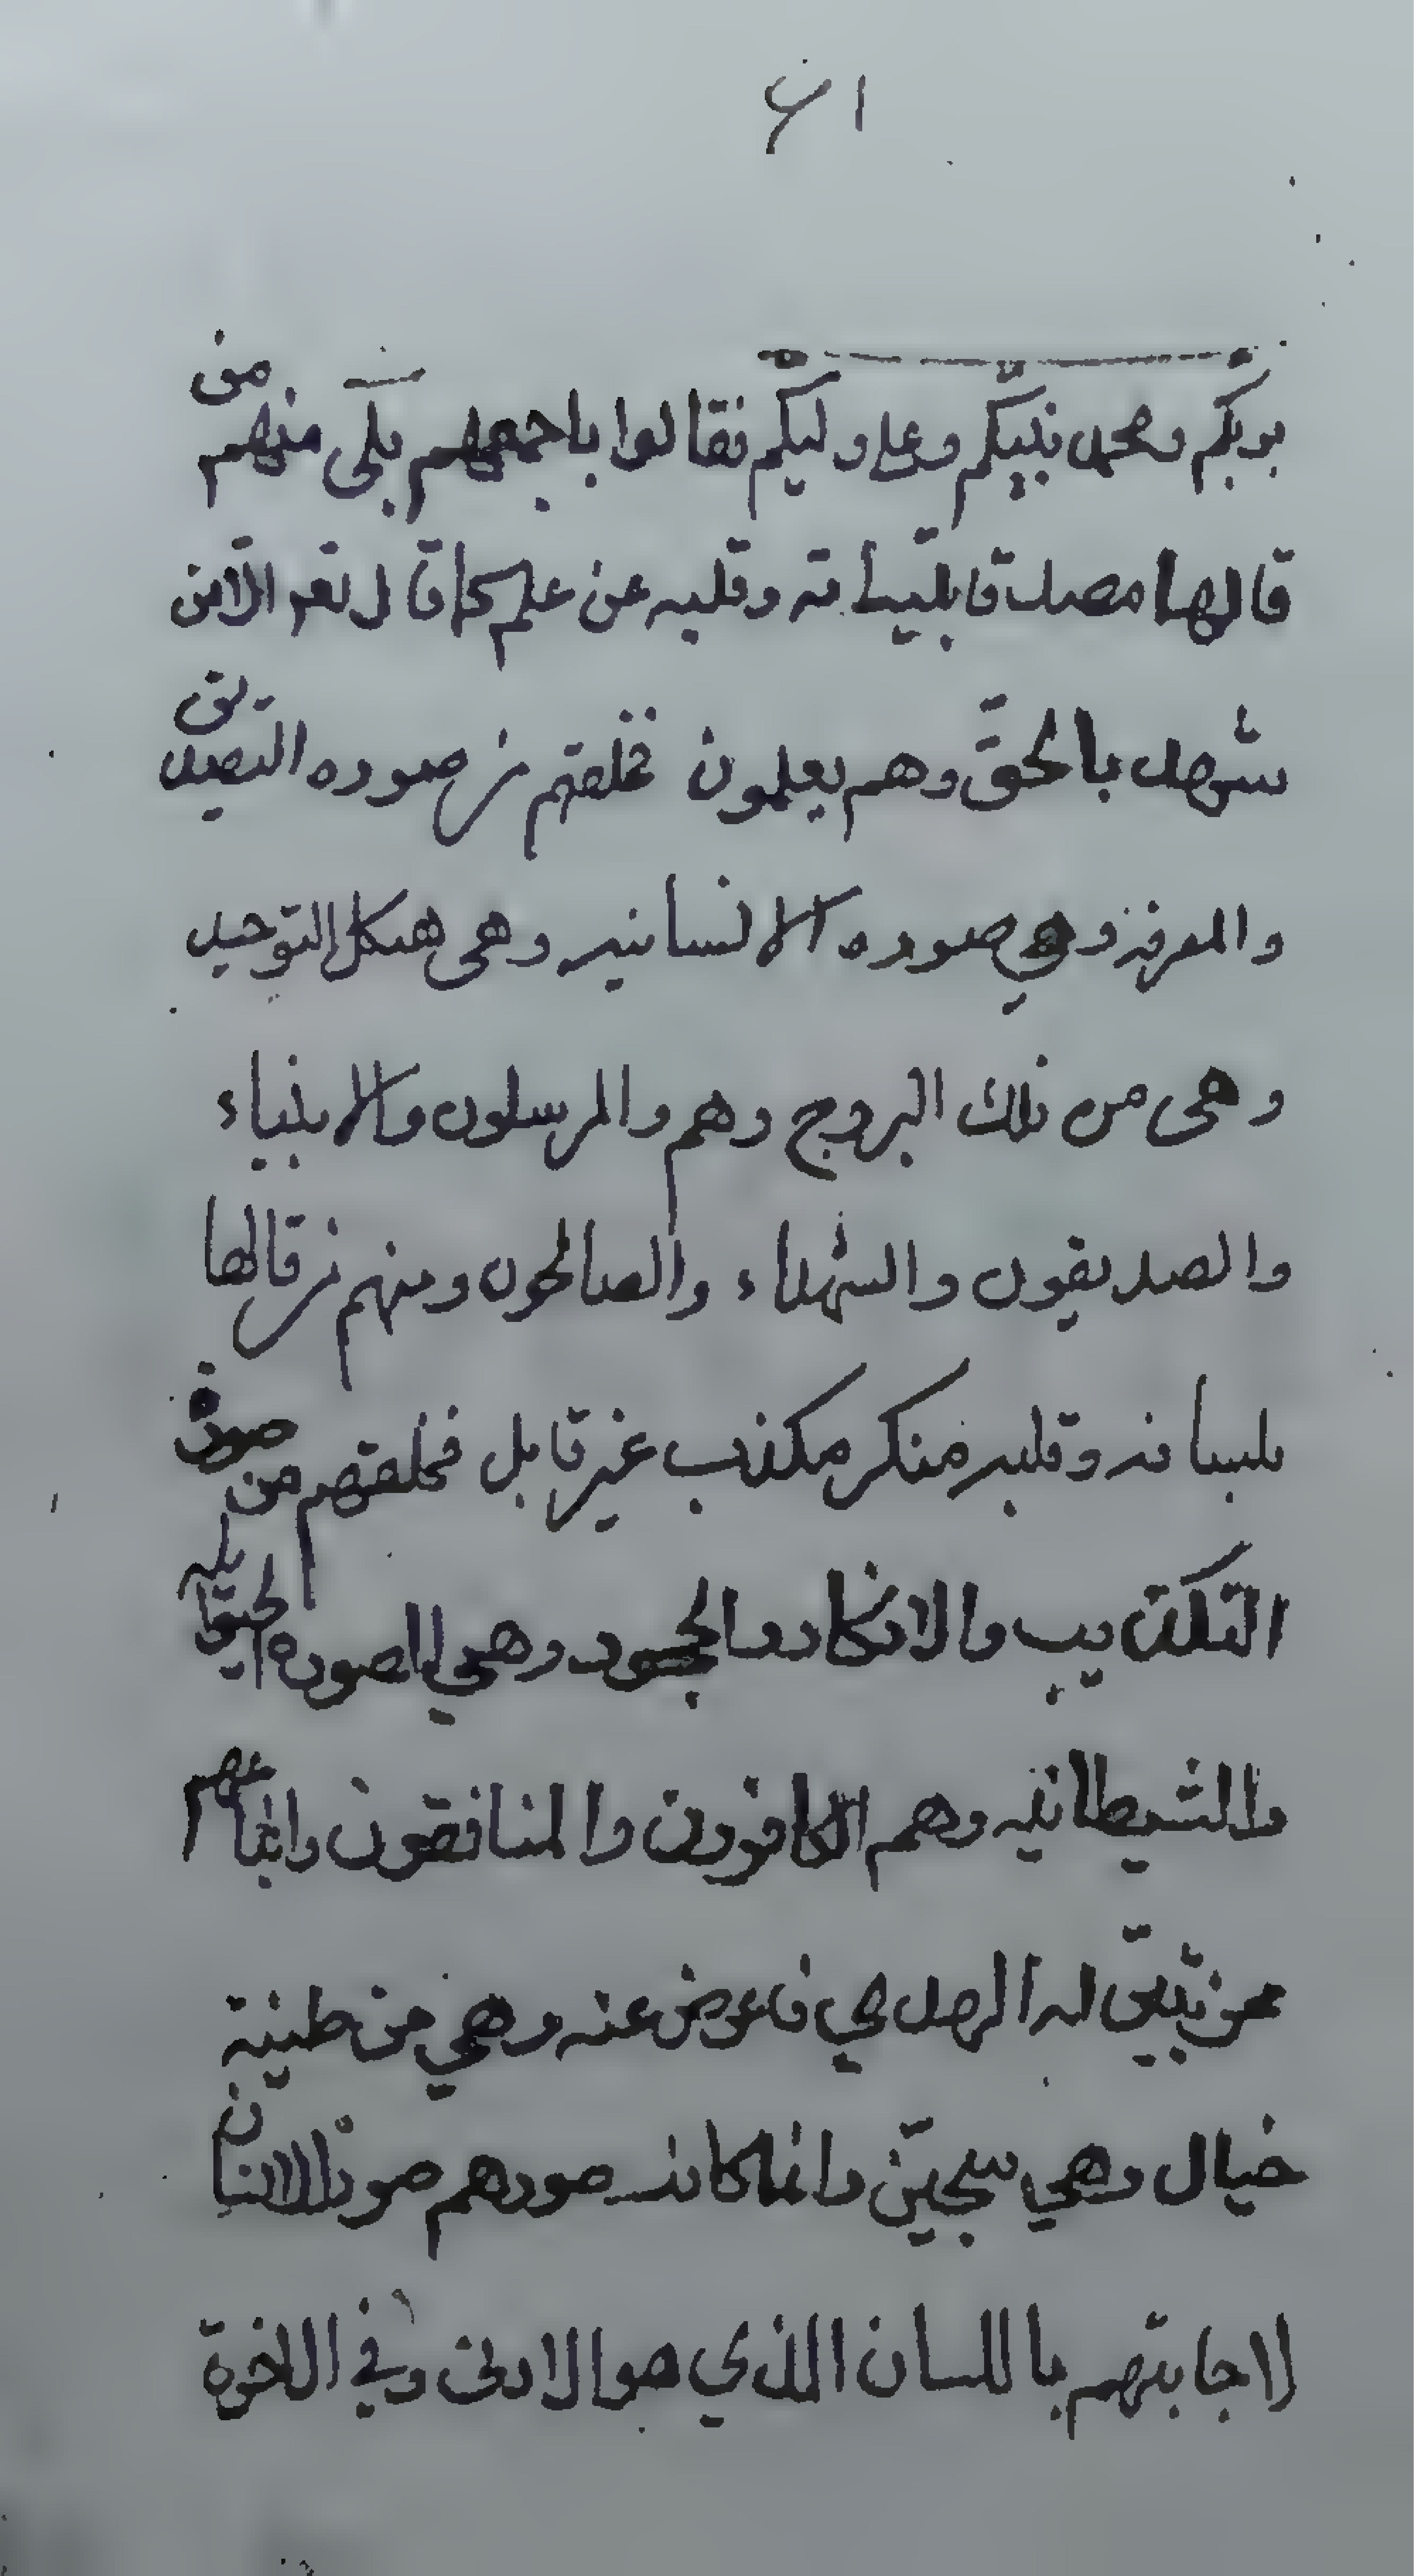 ١٤
بربكم ومحمد نبيكم وعلي وليكم فقالوا باجمعهم بلى منهم من
قالها مصدقا بلسانه وقلبه عن علم كما قال تعالى الا من
شهد بالحق وهم يعلمون فخلقهم من صوره التصديق
والمعرفة وهي صوره الانسانيه وهى هيكل التوحيد
وهى من تلك البروج وهم والمرسلون والانبياء
والصديقون والشهداء والصالحون ومنهم من قالها
بلسانه وقلبه منكر مكذب غير قابل فخلقهم من صورة
التكذيب والانكار والجحود وهي الصوره الحيوانيه
والشيطانيه وهم الكافرون والمنافقون واتباعهم
ممن تبين له الهدى فاعرض عنه وهي من طينة
خبال وهي سجين وانما كانت صورهم صورة الانسان
لاجابتهم باللسان الذي هو الادنى وفي الاخرة